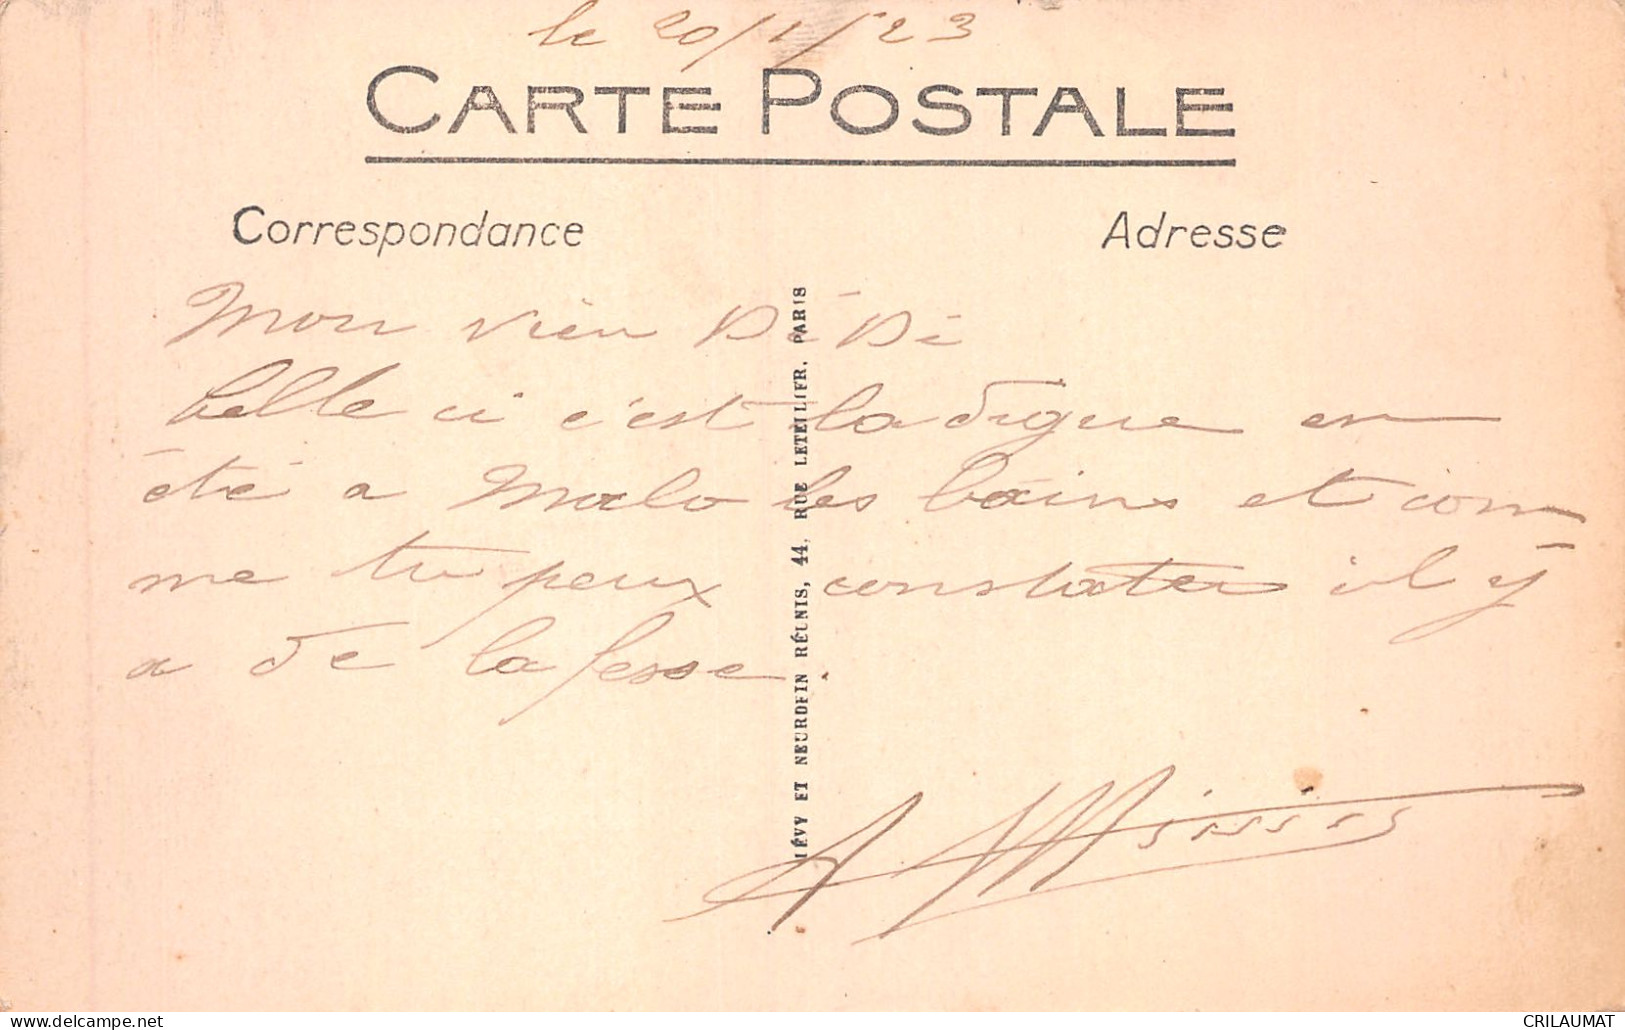 le 20/1/23
CARTE POSTALE
Correspondance
Adresse
Mon vieu DéDé
belle ci c'est la digue en
été a Malo les bains et com
me tu peux constater il y
a de la fesse.
LÉVY ET NEURDEIN RÉUNIS, 44, RUE LETELLIER, PARIS
CRILAUMAT